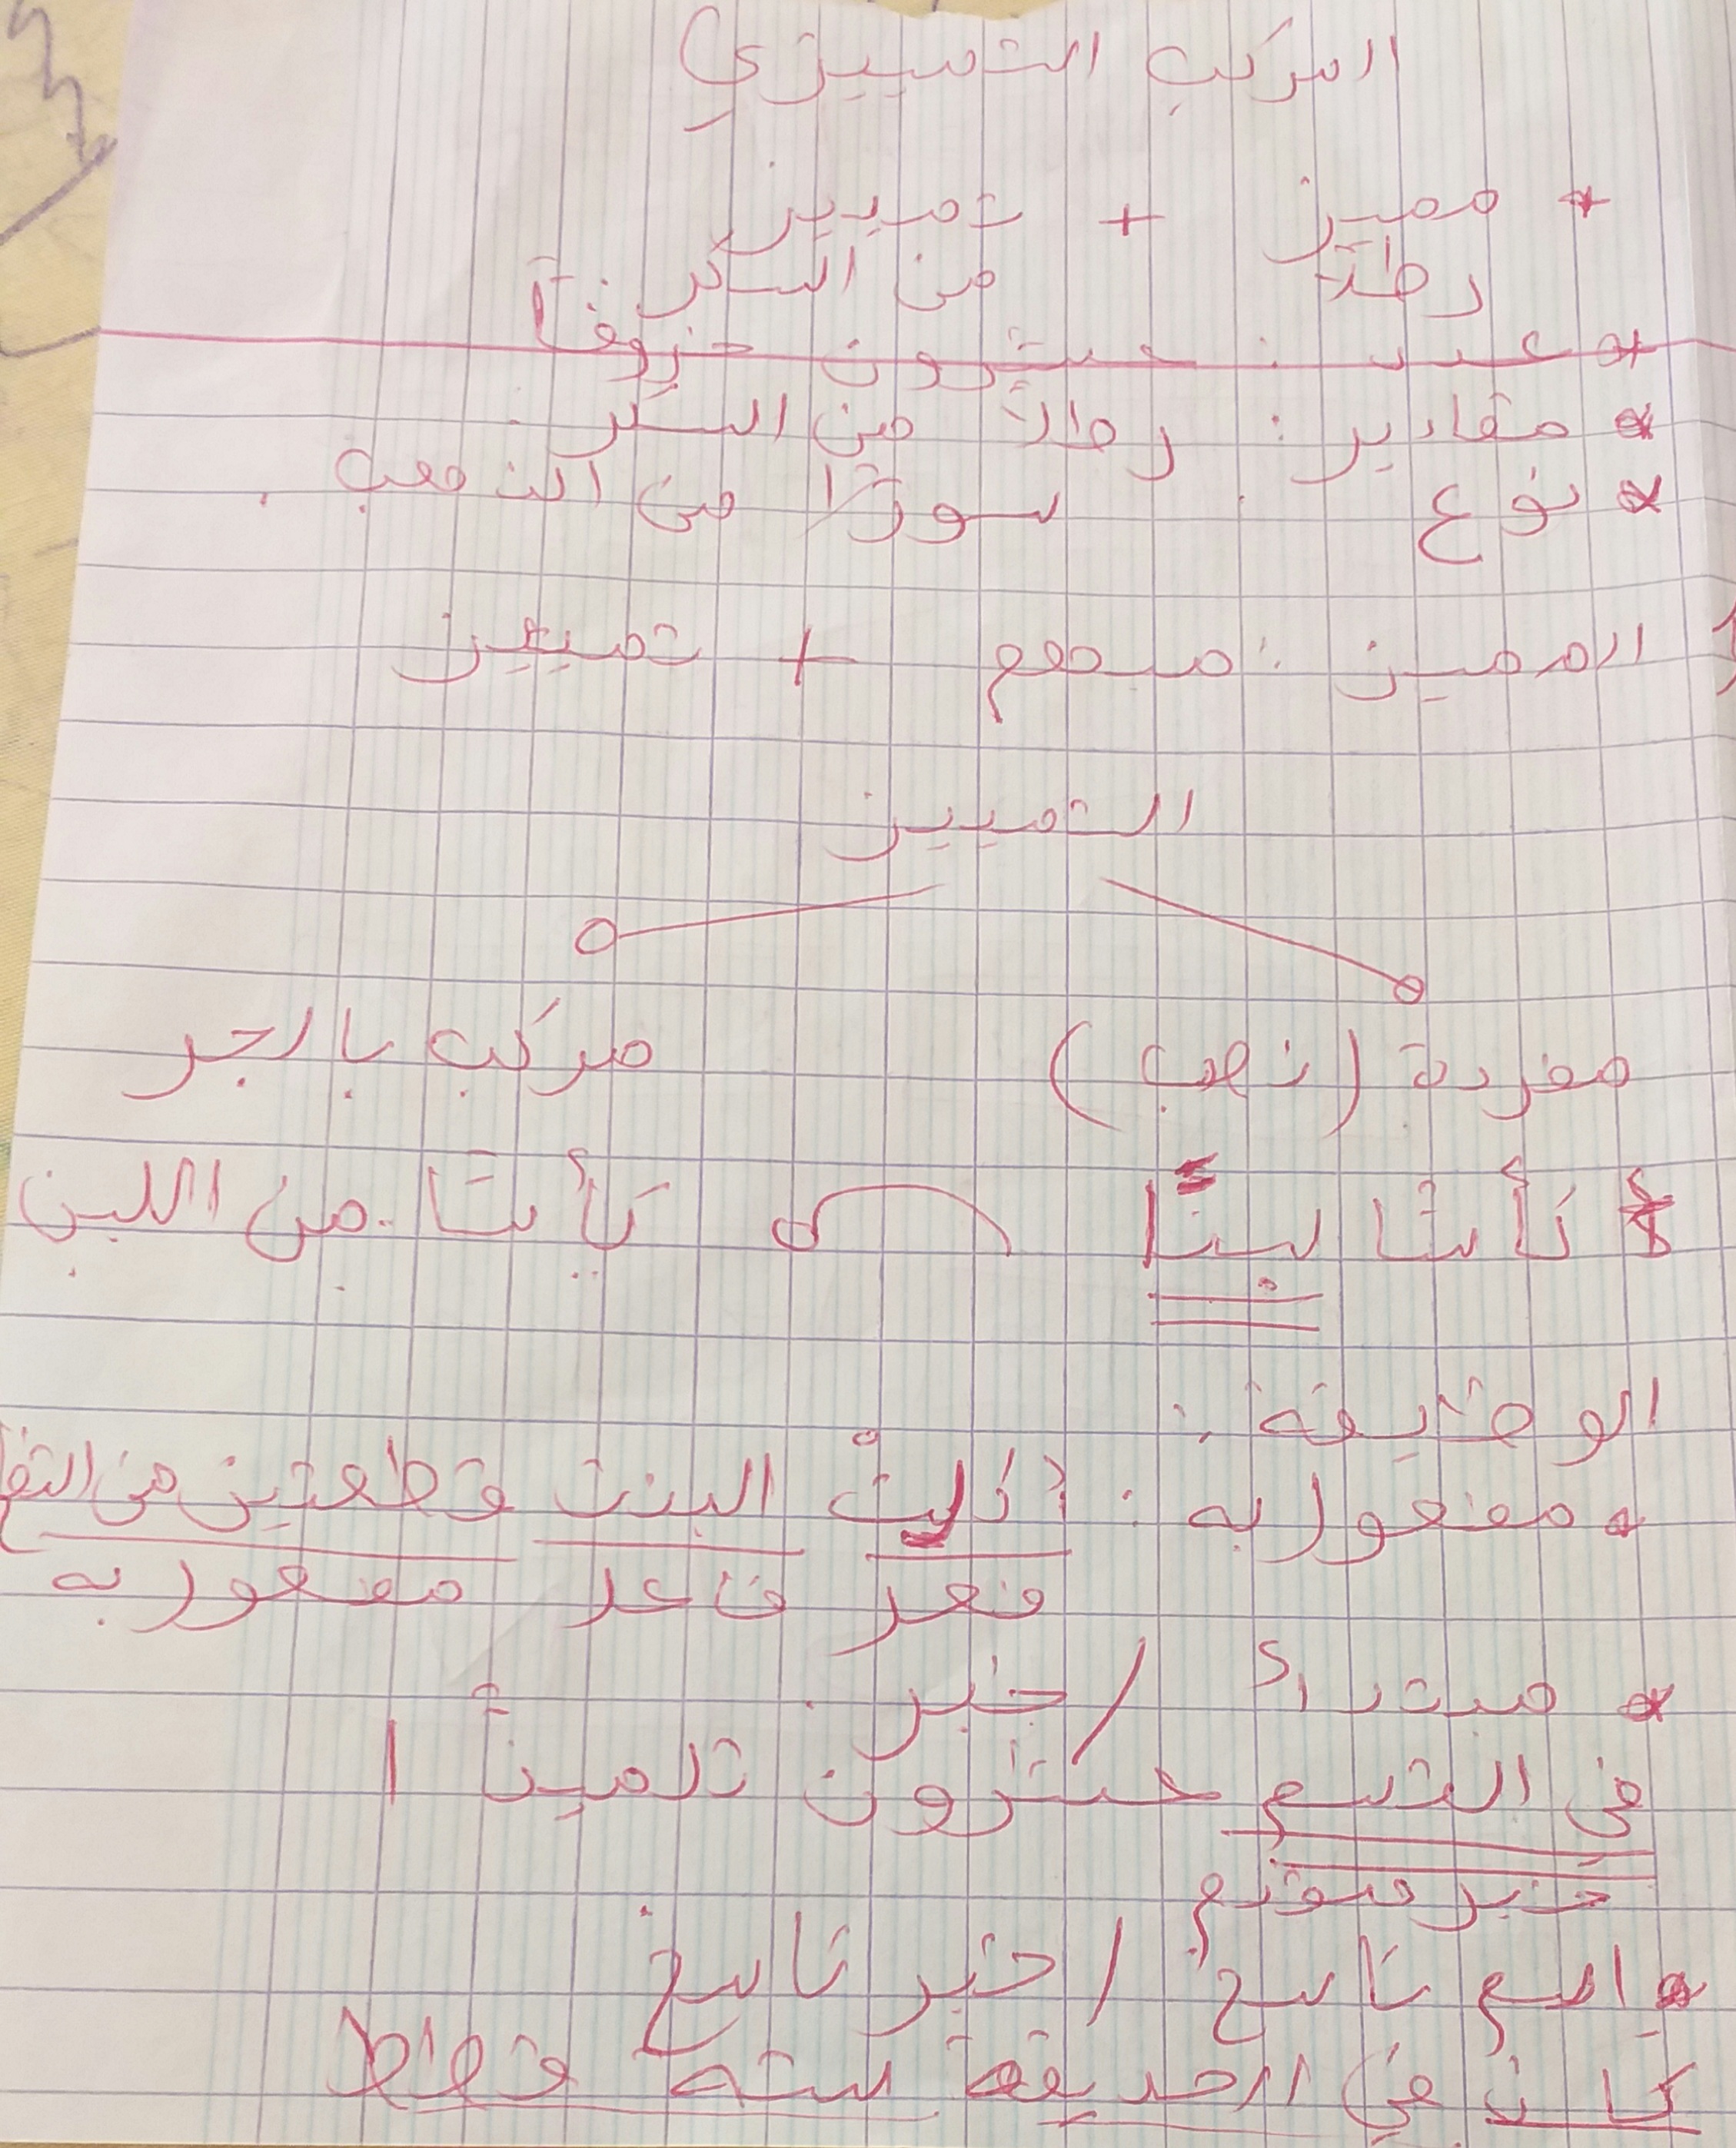 المركب التمييزي
* مميز + تمييز
رطلا من السكر.
* عدد: عشرون خروفًا
* مقادير: رطلاً من السكر.
* نوع: سورًا من الذهب.
المميز: مبهم + تمييز
التمييز
مفردة (نصب) مركب بالجر
* كأسًا لبنًا كأسًا من اللبن
الوظيفة:
* مفعول به: أكلتْ البنت قطعتين من التفاح
فعل فاعل مفعول به
* مبتدأ / خبر.
في القسم عشرون تلميذًا
خبر مقدم
* اسم ناسخ / خبر ناسخ.
كان في الحديقة ستة قطط